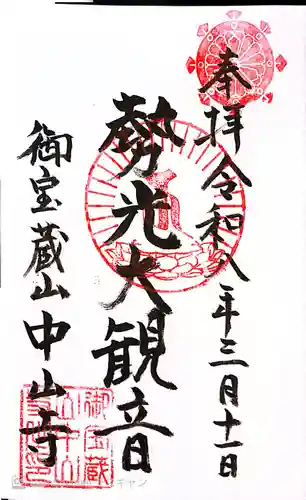 奉拝 令和八年三月十一日
勢光大観音
御宝蔵山 中山寺
御宝蔵
山中山
寺印